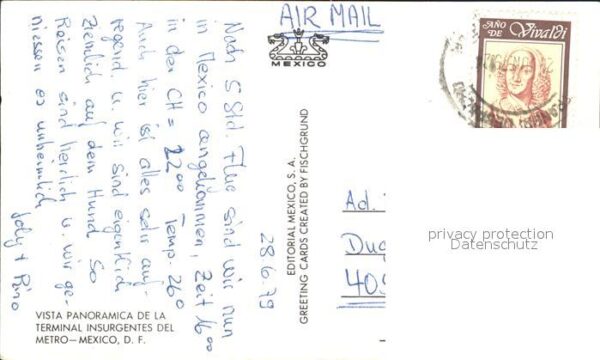 AIR MAIL
AÑO DE Vivaldi
MEXICO
28.6.79
Nach 5 Std. Flug sind wir nun
in Mexico angekommen, Zeit 16 00
in der CH = 22 00 Temp. 26°
Auch hier ist alles sehr auf-
regend u. wir sind eigentlich
ziemlich auf dem Hund. So
Reisen sind herrlich u. wir ge-
niessen es unheimlich
EDITORIAL MEXICO, S. A.
GREETING CARDS CREATED BY FISCHGRUND
Ad.
Dug
409
privacy protection
Datenschutz
VISTA PANORAMICA DE LA
TERMINAL INSURGENTES DEL
METRO—MEXICO, D. F.